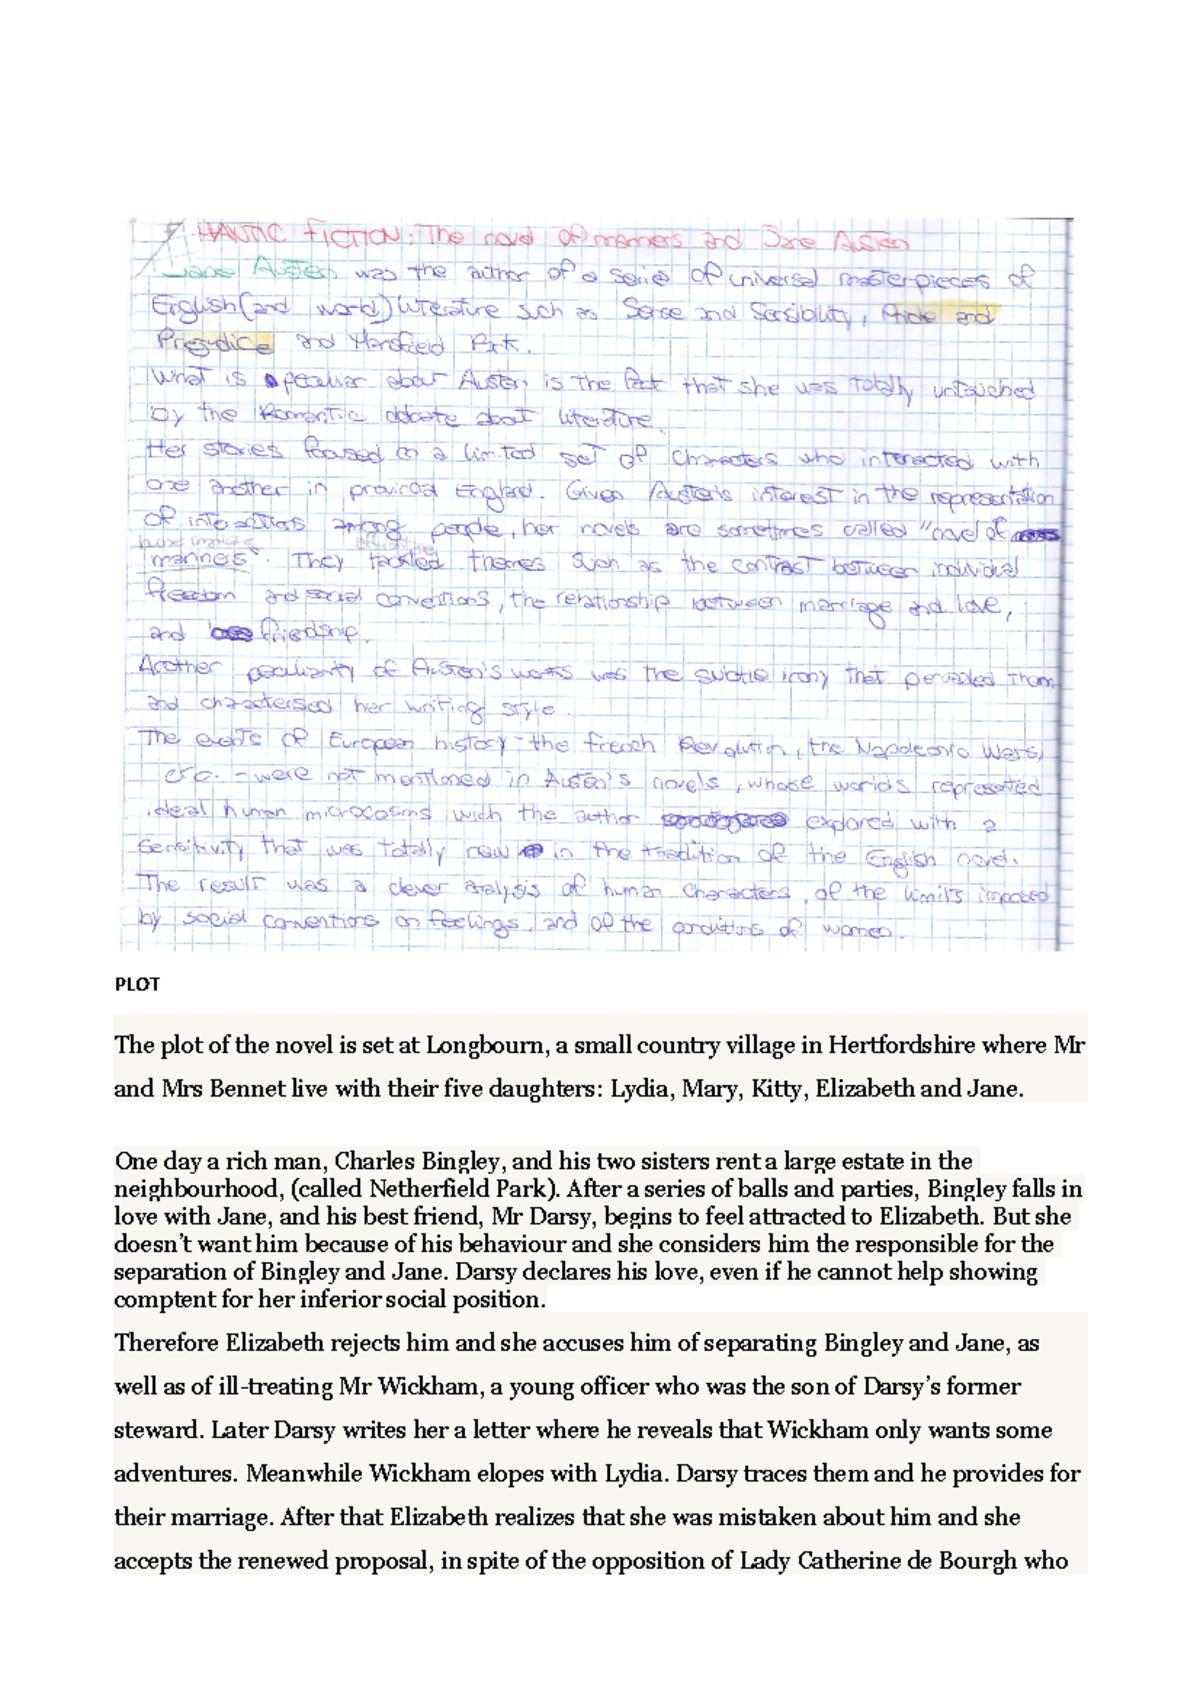 HANTIC FICTION: The novel of manners and Jane Austen
Jane Austen was the author of a series of universal masterpieces of
English (and world) literature such as Sense and Sensibility, Pride and
Prejudice and Mansfield Park.
What is peculiar about Austen is the fact that she was totally untouched
by the Romantic debate about literature.
Her stories focused on a limited set of characters who interacted with
one another in provincial England. Given Austen's interest in the representation
of interactions among people, her novels are sometimes called "novel of
manners". They tackled themes such as the contrast between individual
freedom and social conventions, the relationship between marriage and love,
and friendship.
Another peculiarity of Austen's works was the subtle irony that pervaded them
and characterised her writing style.
The events of European history - the French Revolution, the Napoleonic Wars,
etc. - were not mentioned in Austen's novels, whose worlds represented
ideal human microcosms wich the author explored with a
sensitivity that was totally new in the tradition of the English novel.
The result was a clever analysis of human characters, of the limits imposed
by social conventions on feelings, and of the conditions of women.
PLOT
The plot of the novel is set at Longbourn, a small country village in Hertfordshire where Mr
and Mrs Bennet live with their five daughters: Lydia, Mary, Kitty, Elizabeth and Jane.
One day a rich man, Charles Bingley, and his two sisters rent a large estate in the
neighbourhood, (called Netherfield Park). After a series of balls and parties, Bingley falls in
love with Jane, and his best friend, Mr Darsy, begins to feel attracted to Elizabeth. But she
doesn't want him because of his behaviour and she considers him the responsible for the
separation of Bingley and Jane. Darsy declares his love, even if he cannot help showing
comptent for her inferior social position.
Therefore Elizabeth rejects him and she accuses him of separating Bingley and Jane, as
well as of ill-treating Mr Wickham, a young officer who was the son of Darsy's former
steward. Later Darsy writes her a letter where he reveals that Wickham only wants some
adventures. Meanwhile Wickham elopes with Lydia. Darsy traces them and he provides for
their marriage. After that Elizabeth realizes that she was mistaken about him and she
accepts the renewed proposal, in spite of the opposition of Lady Catherine de Bourgh who